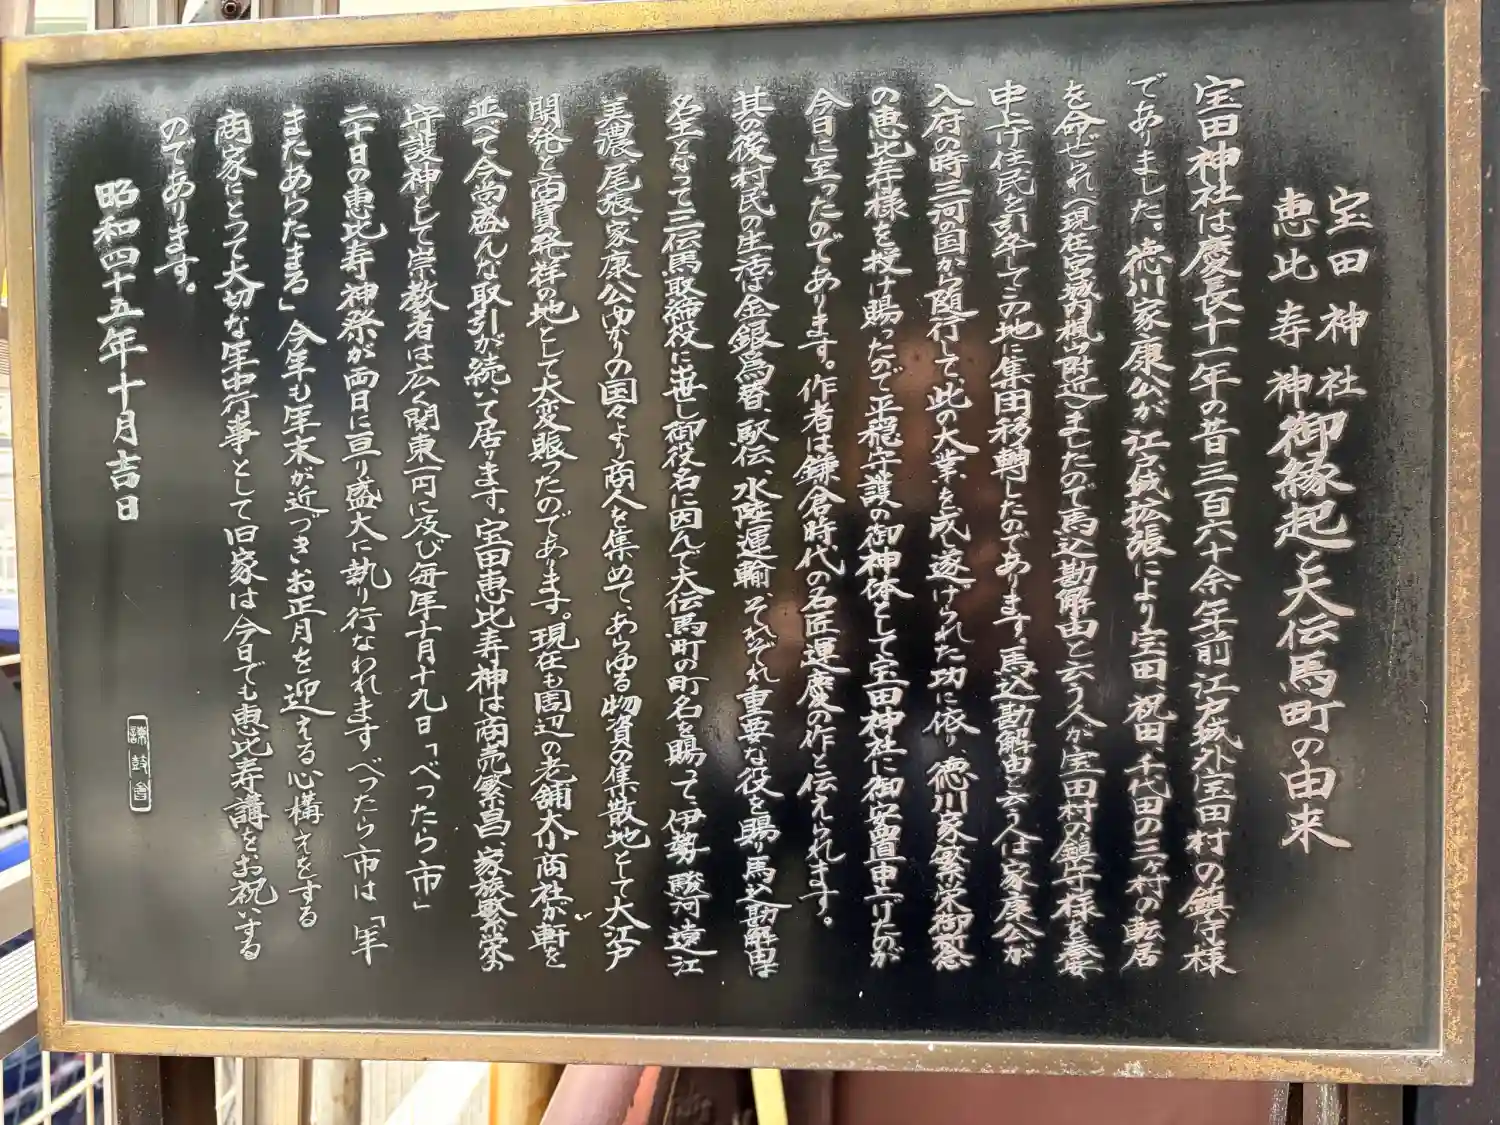 宝田神社
恵比寿神
御縁起と大伝馬町の由来
宝田神社は慶長十一年の昔三百六十余年前江戸城外宝田村の鎮守様
でありました。徳川家康公が江戸城拡張により宝田、祝田、千代田の三ヶ村の転居
を命ぜられ(現在宮城内楓山附近)ましたので馬込勘解由と云う人が宝田村の鎮守様を奉安
申上げ住民を引卒してこの地に集団移転したのであります。馬込勘解由と云う人は家康公が
入府の時三河の国から随行して此の大業を成し遂げられた功に依り、徳川家繁栄御祈念
の恵比寿様を授け賜ったので平穏守護の御神体として宝田神社に御安置申上げたのが
今日に至ったのであります。作者は鎌倉時代の名匠運慶の作と伝えられます。
其の後村民の生活は金銀為替、駅伝、水陸運輸、それぞれ重要な役を賜り馬込勘解由は
名主となって三伝馬取締役に出世し御役名に因んで大伝馬町の町名を賜って、伊勢、駿河、遠江
美濃、尾張、家康公ゆかりの国々より商人を集めて、あらゆる物資の集散地として大江戸
開発と商賣発祥の地として大変賑ったのであります。現在も周辺の老舗大小商社が軒を
並べて今尚盛んな取引が続いて居ります。宝田恵比寿神は商売繁昌、家族繁栄の
守護神として崇敬者は広く関東一円に及び毎年十月十九日「べったら市」
二十日の恵比寿神祭が両日に亘り盛大に執り行なわれますべったら市は「年
またあらたまる」今年も年末が近づきお正月を迎える心構えをする
商家にとって大切な年中行事として旧家は今日でも恵比寿講をお祝いする
のであります。
昭和四十五年十月吉日
諫鼓會